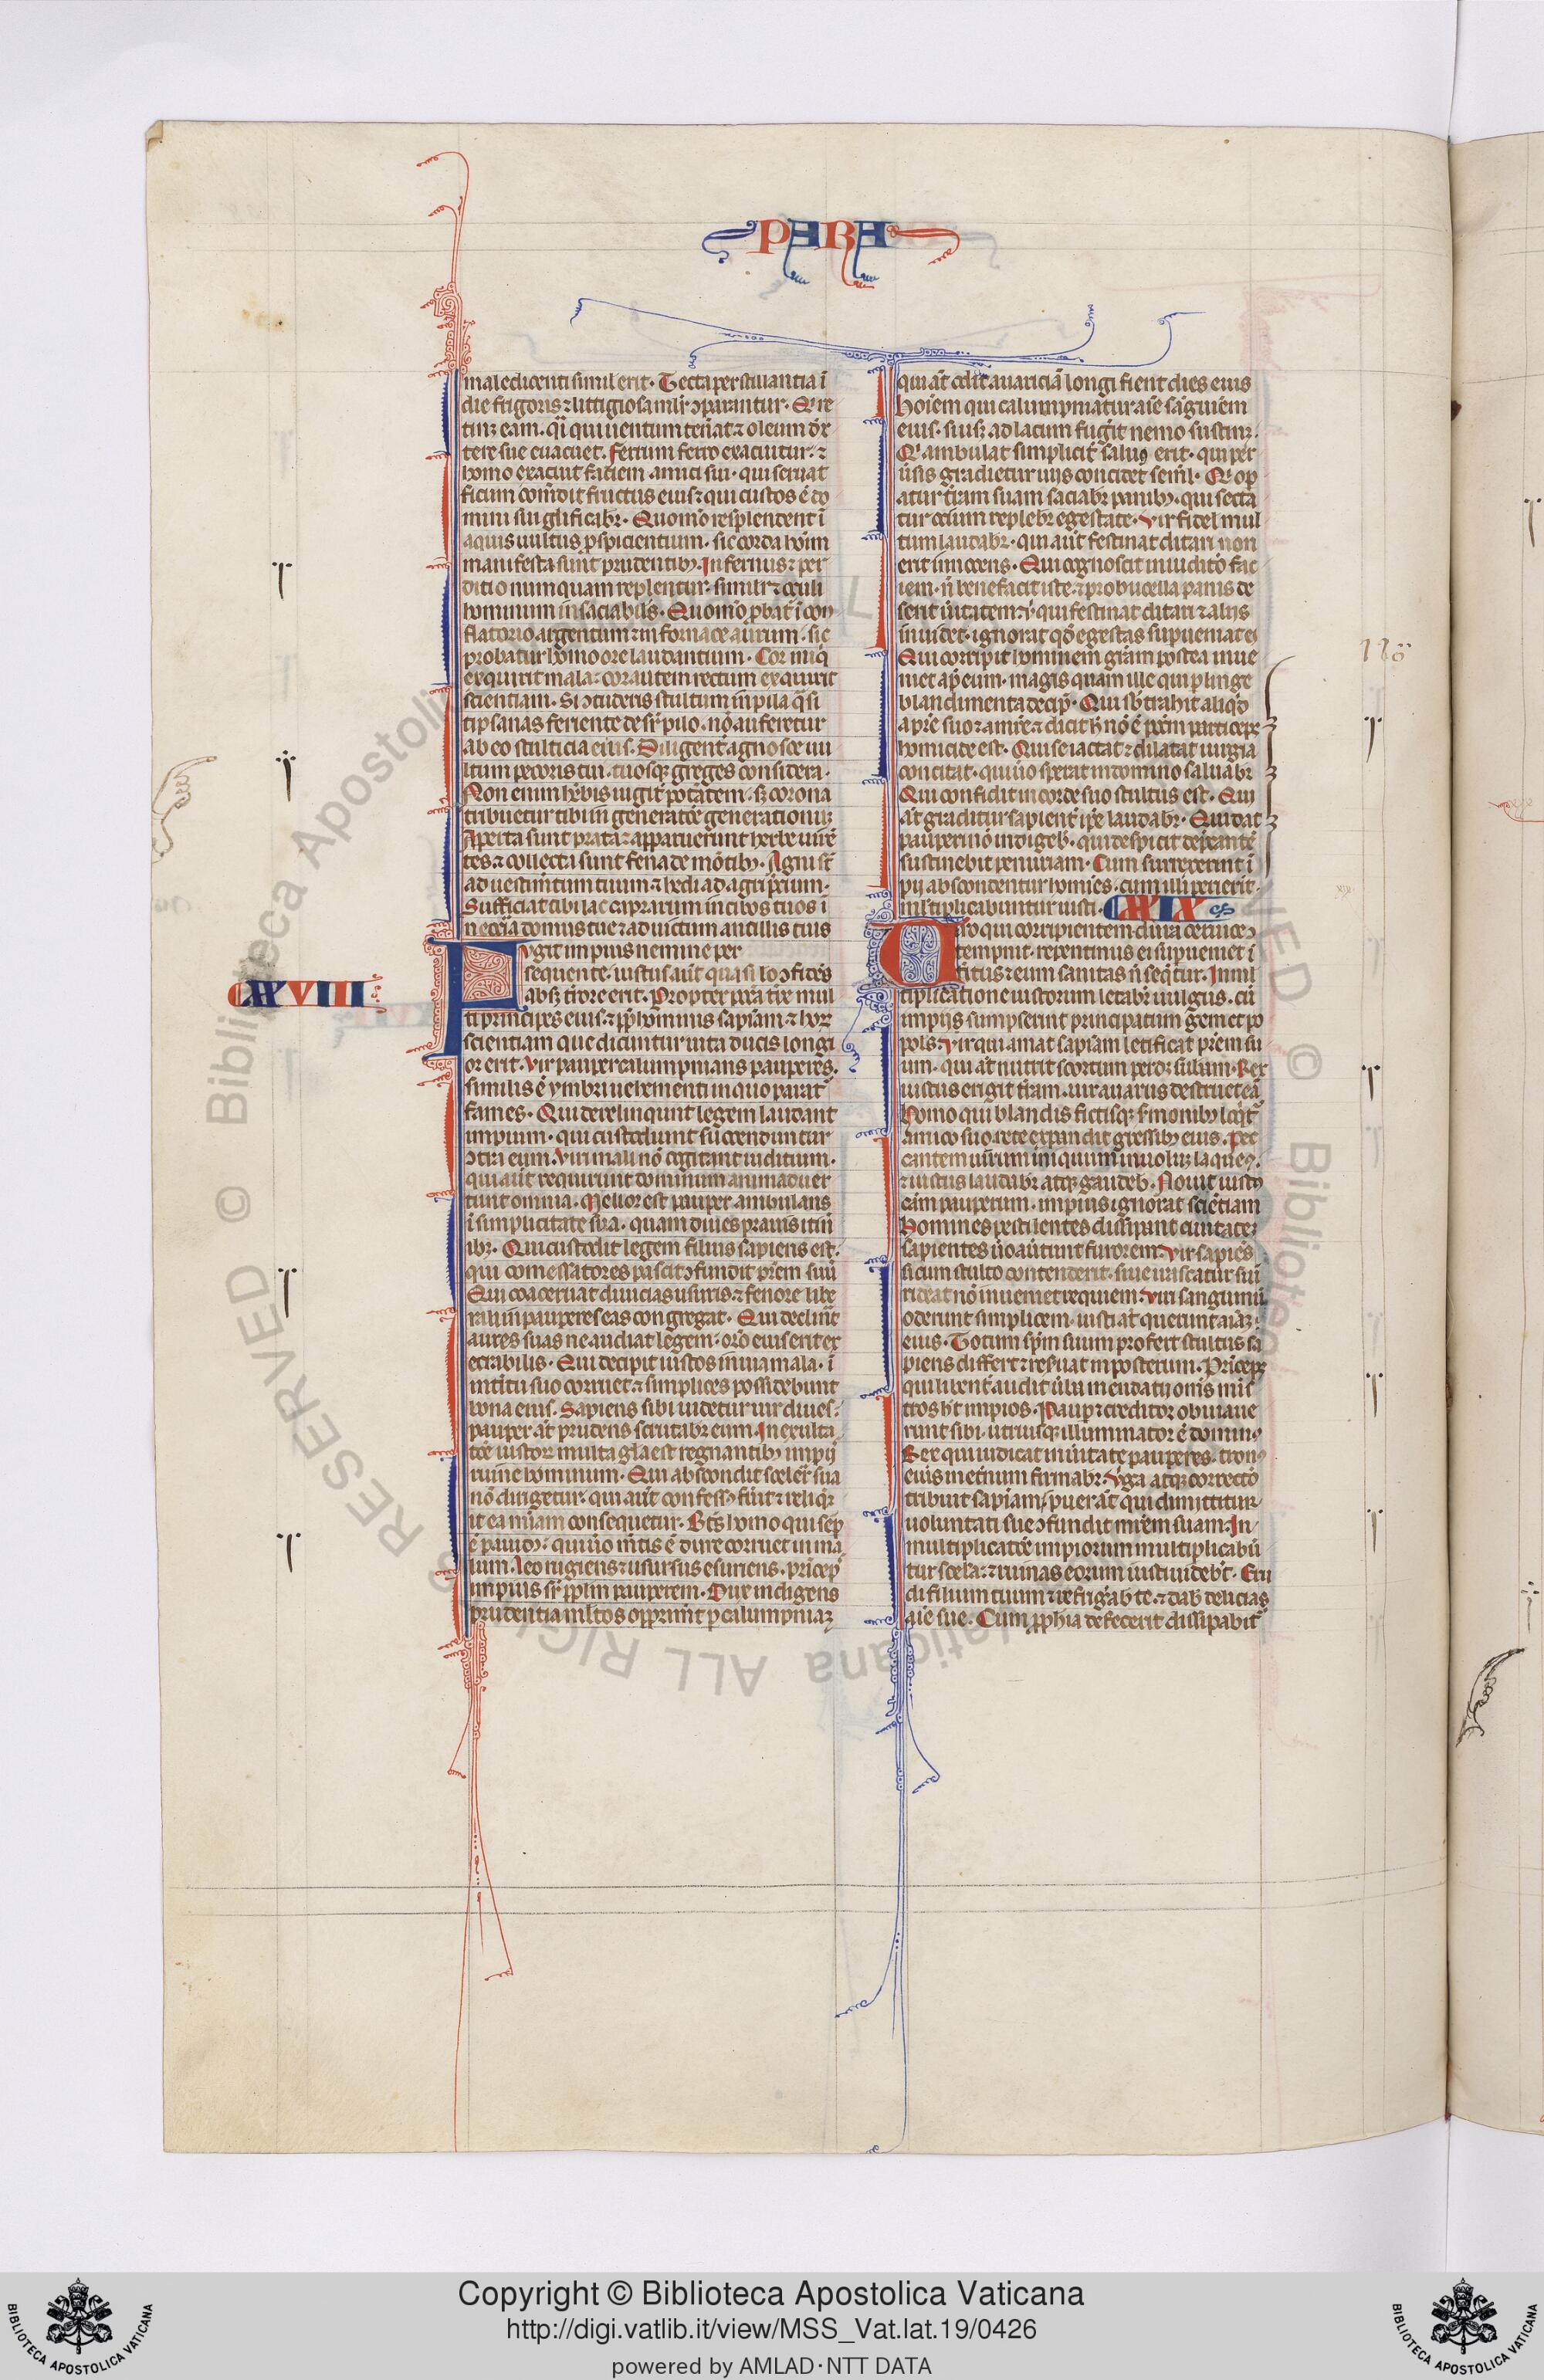 PARA
maledicenti simil erit. Tecta perstillantia ī
die frigoris ⁊ littigiosa mulr̄ ↄparantur. Q̄ re
tinꝫ eam. q̄i qui uentum teneat ⁊ oleum dex
tere sue euacuet. Ferrum ferro exacuitur. ⁊
homo exacuit faciem amici sui. qui seruat
ficum comedit fructus eius ⁊ qui custos ē do
mini sui glificabr̄. Quomō resplendent ī
aquis uultus ꝓspicientium. sic corda hoīm
manifesta sunt prudentibꝫ. Infernus ⁊ per
ditio numquam replentur. similr̄ ⁊ oculi
hominum insaciabiles. Quomō ꝓbat̄ ī con
flatorio argentum ⁊ in fornace aurum. sic
probatur homo ore laudantium. Cor iniq̄
exquirit mala: cor autem rectum exquirit
scientiam. Si ↄtuderis stultum in pila q̄si
tipsanas feriente desr̄ pilo. nō auferetur
ab eo stulticia eius. Diligent̄ agnosce uu
ltum pecoris tui. tuosqꝫ greges considera.
Non enim hēbis iugit̄ potātem. sꝫ corona
tribuetur tibi in generatōe generationuꝫ
Aperta sunt prata ⁊ apparuerunt herbe uirē
tes ⁊ collecta sunt fena de mōtibꝫ. Agni st̄
ad uestim̄tum tuum ⁊ hedi ad agri p̄cium.
Sufficiat tibi lac caprarum in cibos tuos ī
neccīā domus tue ⁊ ad uictum ancillis tuis
CXXVIII
Fugit impius nemine per
sequente. iustus aūt quasi leo ↄfidēs
absqꝫ t̄rore erit. Propter pc̄ca t̄re mul
ti principes eius. ⁊ ꝓp̄ hominis sapīam ⁊ hoꝝ
scientiam que dicuntur uita ducis longi
or erit. Vir pauper calumpnians pauperes.
similis ē ymbri uehementi in quo parat̄
fames. Qui derelinqunt legem laudant
impium. qui custodiunt succenduntur
ↄtra eum. Viri mali nō cogitant iuditium.
qui aūt requirunt dominum animaduer
tunt omnia. Melior est pauper ambulans
ī simplicitate sua. quam diues prauis itin̄
ibꝫ. Qui custodit legem filius sapiens est.
qui comessatores pascit ↄfundit p̄rem suū
Qui coaceruat diuicias usuris ⁊ fenore libe
rali in pauperes eas congregat. Qui declinat
aures suas ne audiat legem. orō eius erit ex
ecrabilis. Qui decipit iustos in uia mala. ī
interitu suo corruet ⁊ simplices possidebunt
bona eius. Sapiens sibi uidetur uir diues:
pauper aūt prudens scrutabr̄ eum. In exulta
tōe iustoꝝ multa gl̄a est regnantibꝫ impij
ruine hominum. Qui abscondit scelera sua
nō dirigetur. qui aūt confessꝫ fūit ⁊ reliq̄
it ea mīam consequetur. Bt̄s homo qui semp̄
ē pauidꝫ. qui uo mentis ē dure corruet in ma
lum. Leo rugiens ⁊ ursus esuriens. princep̄
impius sr̄ ppl̄m pauperem. Dux indigens
prudentia multos opprim̄t p calumpniaꝫ
qui aūt odit auariciā longi fient dies eius
Hoīem qui calumpniatur aīe sāguinem
eius. si usqꝫ ad lacum fugerit nemo sustinꝫ.
Q̄ ambulat simplicit̄ saluꝫ erit. qui per
uersis gradietur uijs concidet semel. Q̄ op
atur t̄ram suam saciabr̄ panibꝫ. qui secta
tur ocium replebr̄ egestate. Vir fidel̄ mul
tum laudabr̄. qui aūt festinat ditari non
erit innocens. Qui cognoscit in iuditō fac
iem. n̄ benefacit iste ⁊ pro bucella panis de
serit ūitatem. vir qui festinat ditari ⁊ alijs
inuidet. ignorat qd̄ egestas supueniat ei
Qui corripit hominem grām postea inue
niet ap̄ eum. magis quam ille qui p linge
blandimenta decip̄. Qui sb̄trahit aliq̄d
a p̄re suo ⁊ a mr̄e ⁊ dicit h̄ nō ē pc̄cm particeps
homicide est. Qui se iactat ⁊ dilatat iurgia
concitat. qui uo sperat in domino saluabr̄
Qui confidit in corde suo stultus est. Qui
aūt graditur sapient̄ ip̄e laudabr̄. Qui dat
pauperi nō indigeb̄. qui despicit dep̄cantē
sustinebit penuriam. Cum surrexerint ī
pij abscondentur homīes. cum illi perierīt.
ml̄tiplicabuntur iusti. CXXIX
Uiro qui corripientem dura ceruice ↄ
tempnit. repentinus ei supueniet ī
teritus ⁊ eum sanitas n̄ seq̄tur. In mul
tiplicatione iustorum letabr̄ uulgus. cū
impijs sumpserint principatum gemet po
pꝉs. Vir qui amat sapīam letificat p̄rem su
um. qui aūt nutrit scortum perdꝫ s̄bam. Rex
iustus erigit t̄ram. uir auarus destruet eā
Homo qui blandis fictisqꝫ s̄monibꝫ loq̄t̄
amico suo. rete expandit gressibꝫ eius. Pec
cantem uirum iniquum inuoluꝫ laqueꝰ.
⁊ iustus laudabr̄ atqꝫ gaudeb̄. Nouit iustꝰ
cām pauperum. impius ignorat sciētiam
Homines pestilentes dissipant ciuitateꝫ
sapientes uo aūtunt furorem. Vir sapiēs
si cum stulto contenderit. siue irascatur siue
rideat nō inueniet requiem. Viri sanguinū
oderunt simplicem. iusti aūt querunt aīaꝫ.
eius. Totum sp̄m suum profert stultus sa
piens differt ⁊ res̄uat in posterum. Princeps
qui libent̄ audit ūba mendatij om̄s mīs
tros h̄t impios. Paup ⁊ creditor obuiaue
runt sibi. utriusqꝫ illuminator ē dominꝰ
Rex qui iudicat in ūitate pauperes. tronꝰ
eius in et̄num firmabr̄. Virga atqꝫ correctō
tribuit sapīam. puer aūt qui dimittitur
uoluntati sue ↄfundit mr̄em suam. In
multiplicatōe impiorum multiplicabū
tur scelera: ⁊ ruinas eorum iusti uidebt̄. Eru
di filium tuum ⁊ refriḡab̄ te. ⁊ dab̄ delicias
aīe tue. Cum ꝓphīa defecerit dissipabit̄
118
Copyright © Biblioteca Apostolica Vaticana
http://digi.vatlib.it/view/MSS_Vat.lat.19/0426
powered by AMLAD·NTT DATA
BIBLIOTECA APOSTOLICA VATICANA
BIBLIOTECA APOSTOLICA VATICANA